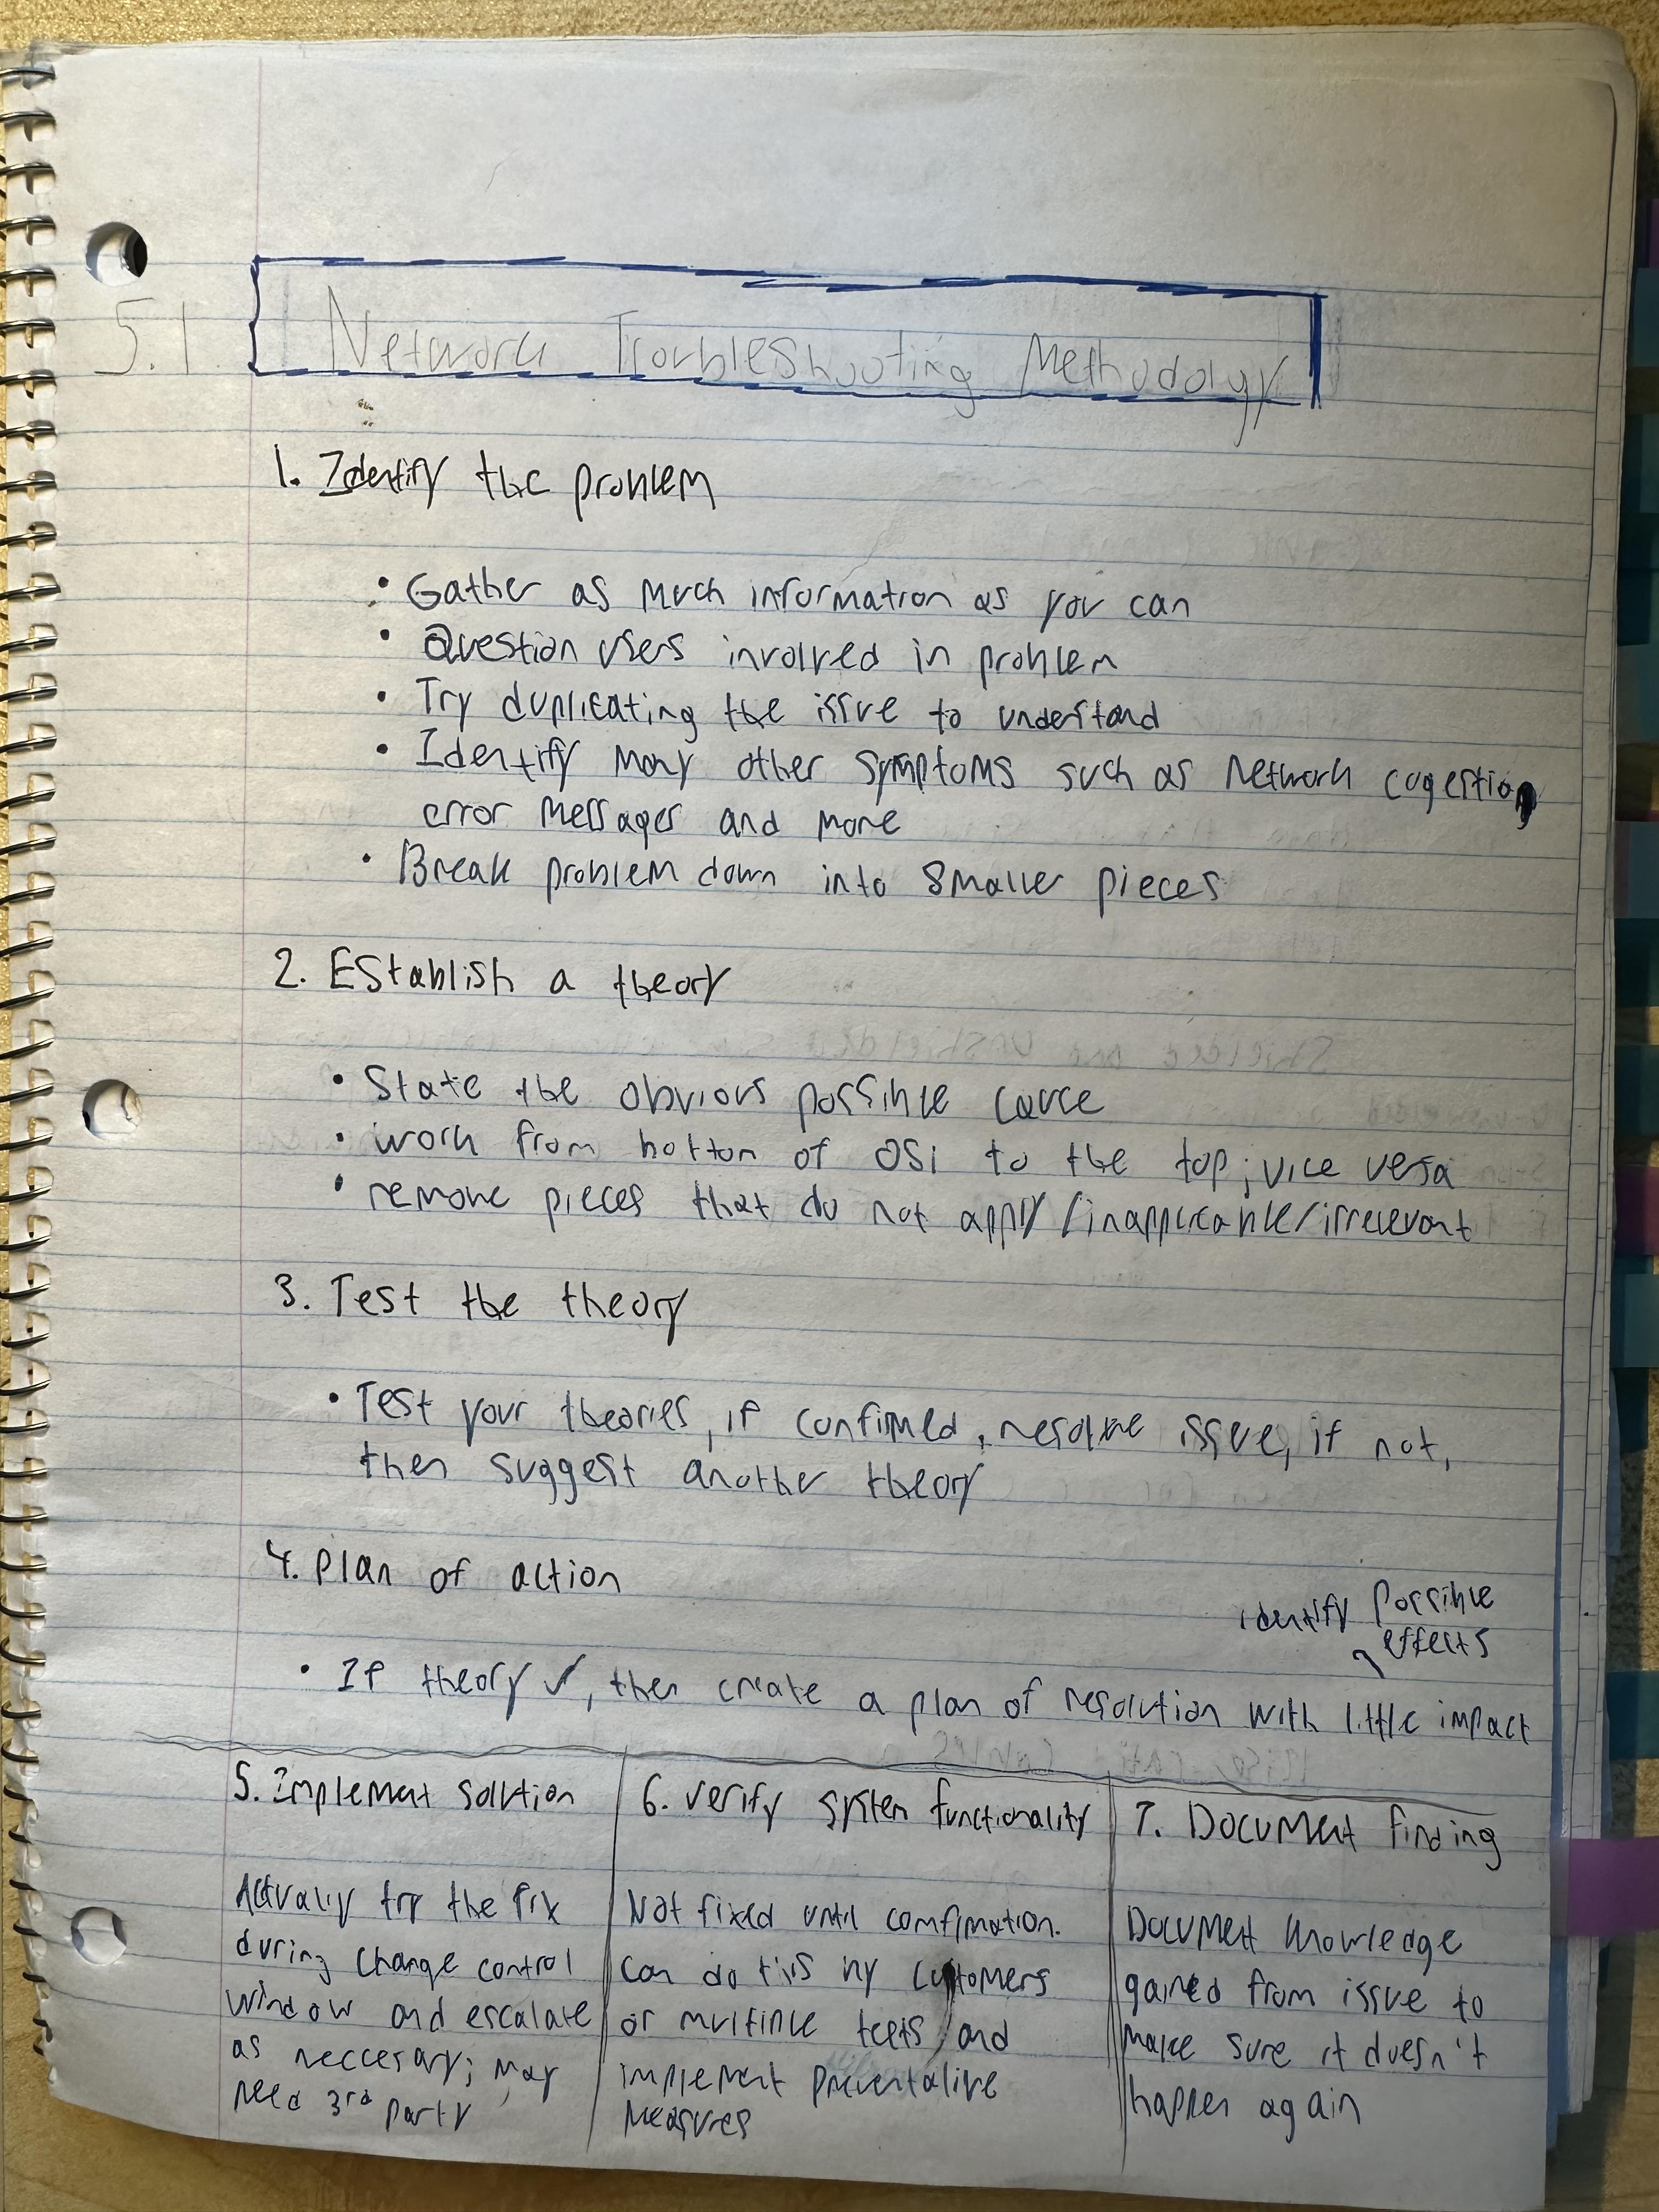 5.1 Network Troubleshooting Methodology
1. Identify the problem
• Gather as much information as you can
• Question users involved in problem
• Try duplicating the issue to understand
• Identify many other symptoms such as network cogestion
error messages and more
• Break problem down into smaller pieces
2. Establish a theory
• State the obvious possible cause
• work from bottom of OSI to the top; vice versa
• remove pieces that do not apply/inapplicable/irrelevant
3. Test the theory
• Test your theories, if confirmed, resolve issue, if not,
then suggest another theory
4. Plan of action
identify possible
effects
• If theory ✓, then create a plan of resolution with little impact
5. Implement solution
Actually try the fix
during change control
window and escalate
as neccesary; may
need 3rd party
6. verify system functionality
Not fixed until comfirmation.
Can do this by customers
or multiple tests, and
implement preventative
measures
7. Document finding
Document knowledge
gained from issue to
make sure it doesn't
happen again